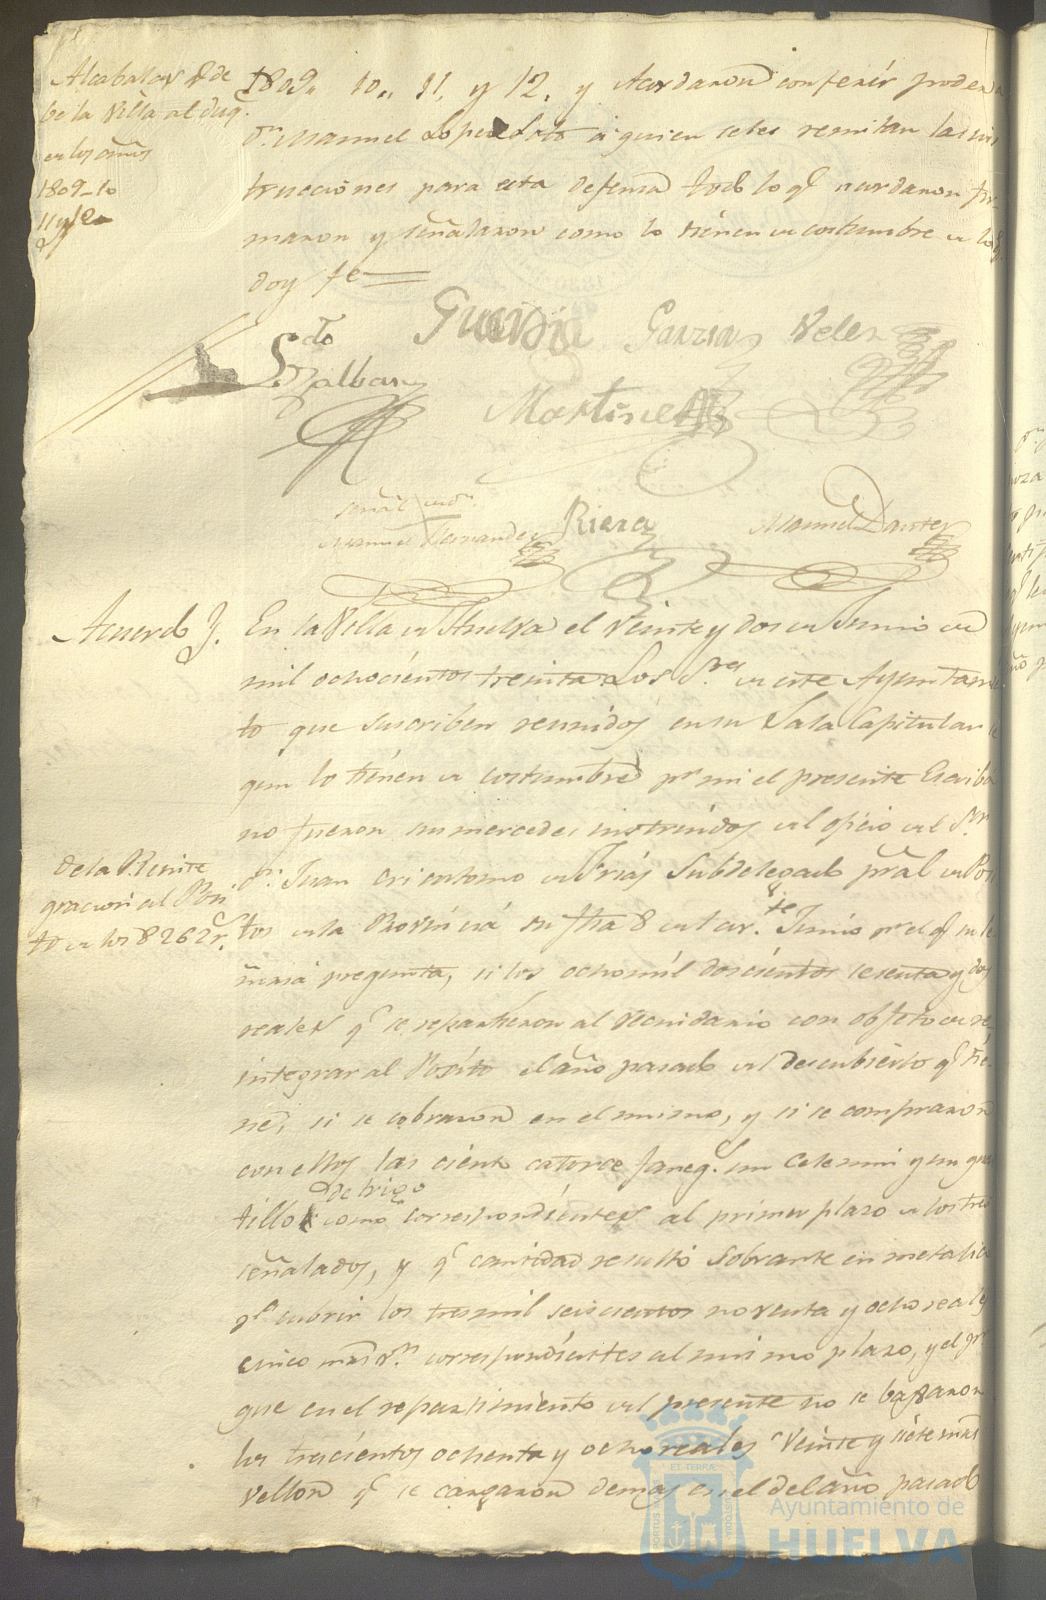 Alcabalas q.e de
be la Villa al duq.
en los años
1809-10
11 y 12
1809,, 10,, 11, y 12, y Acordaron conferir poder a
D.n Manuel Lopez Soto a quien seles remitan las ins
trucciones para esta defensa todo lo q.e acordaron fir-
maron y señalaron como lo tienen de costumbre de lo q.
doy fe
Ldo
Guardia
Garzia
Velez
Martinez
señal de
Manuel Hernandez
Riera
Manuel Dauter
Acuerdo
En la Villa de Huelva el Veinte y dos de Junio de
mil ochocientos treinta Los S.res de este Ayuntamien
to que suscriben reunidos en su Sala Capitular se
gun lo tienen de costumbre p.r mi el presente Escriba
no fueron sus mercedes instruidos del oficio del S.or
De la Reinte
gracion al Posi
to de los 8262 r.s
D.n Juan Crisostomo de Frias Subdelegado pral de Posi
tos de la Provincia su fha 8 del cor.te Junio p.r el q.e su Se
ñoria pregunta, si los ochomil doscientos sesenta y dos
reales q.e se repartieron al Vecindario con objeto de re
integrar al Posito el año pasado del descubierto q.e tie-
ne, si se cobraron en el mismo, y si se compraron
con ellos las ciento catorce faneg.s un celemin y un quar
tillo de trigo como correspondientes al primer plazo de los tres
señalados, y q.e cantidad resultó sobrante en metalico
p.a cubrir los tres mil seiscientos noventa y ocho reales
cinco mrs v.n correspondientes al mismo plazo, y el p.r
que en el repartimiento del presente no se bajaron
los trescientos ochenta y ocho reales Veinte y siete mrs
vellon q.e se cargaron demas en el del año pasado
Ayuntamiento de
HUELVA